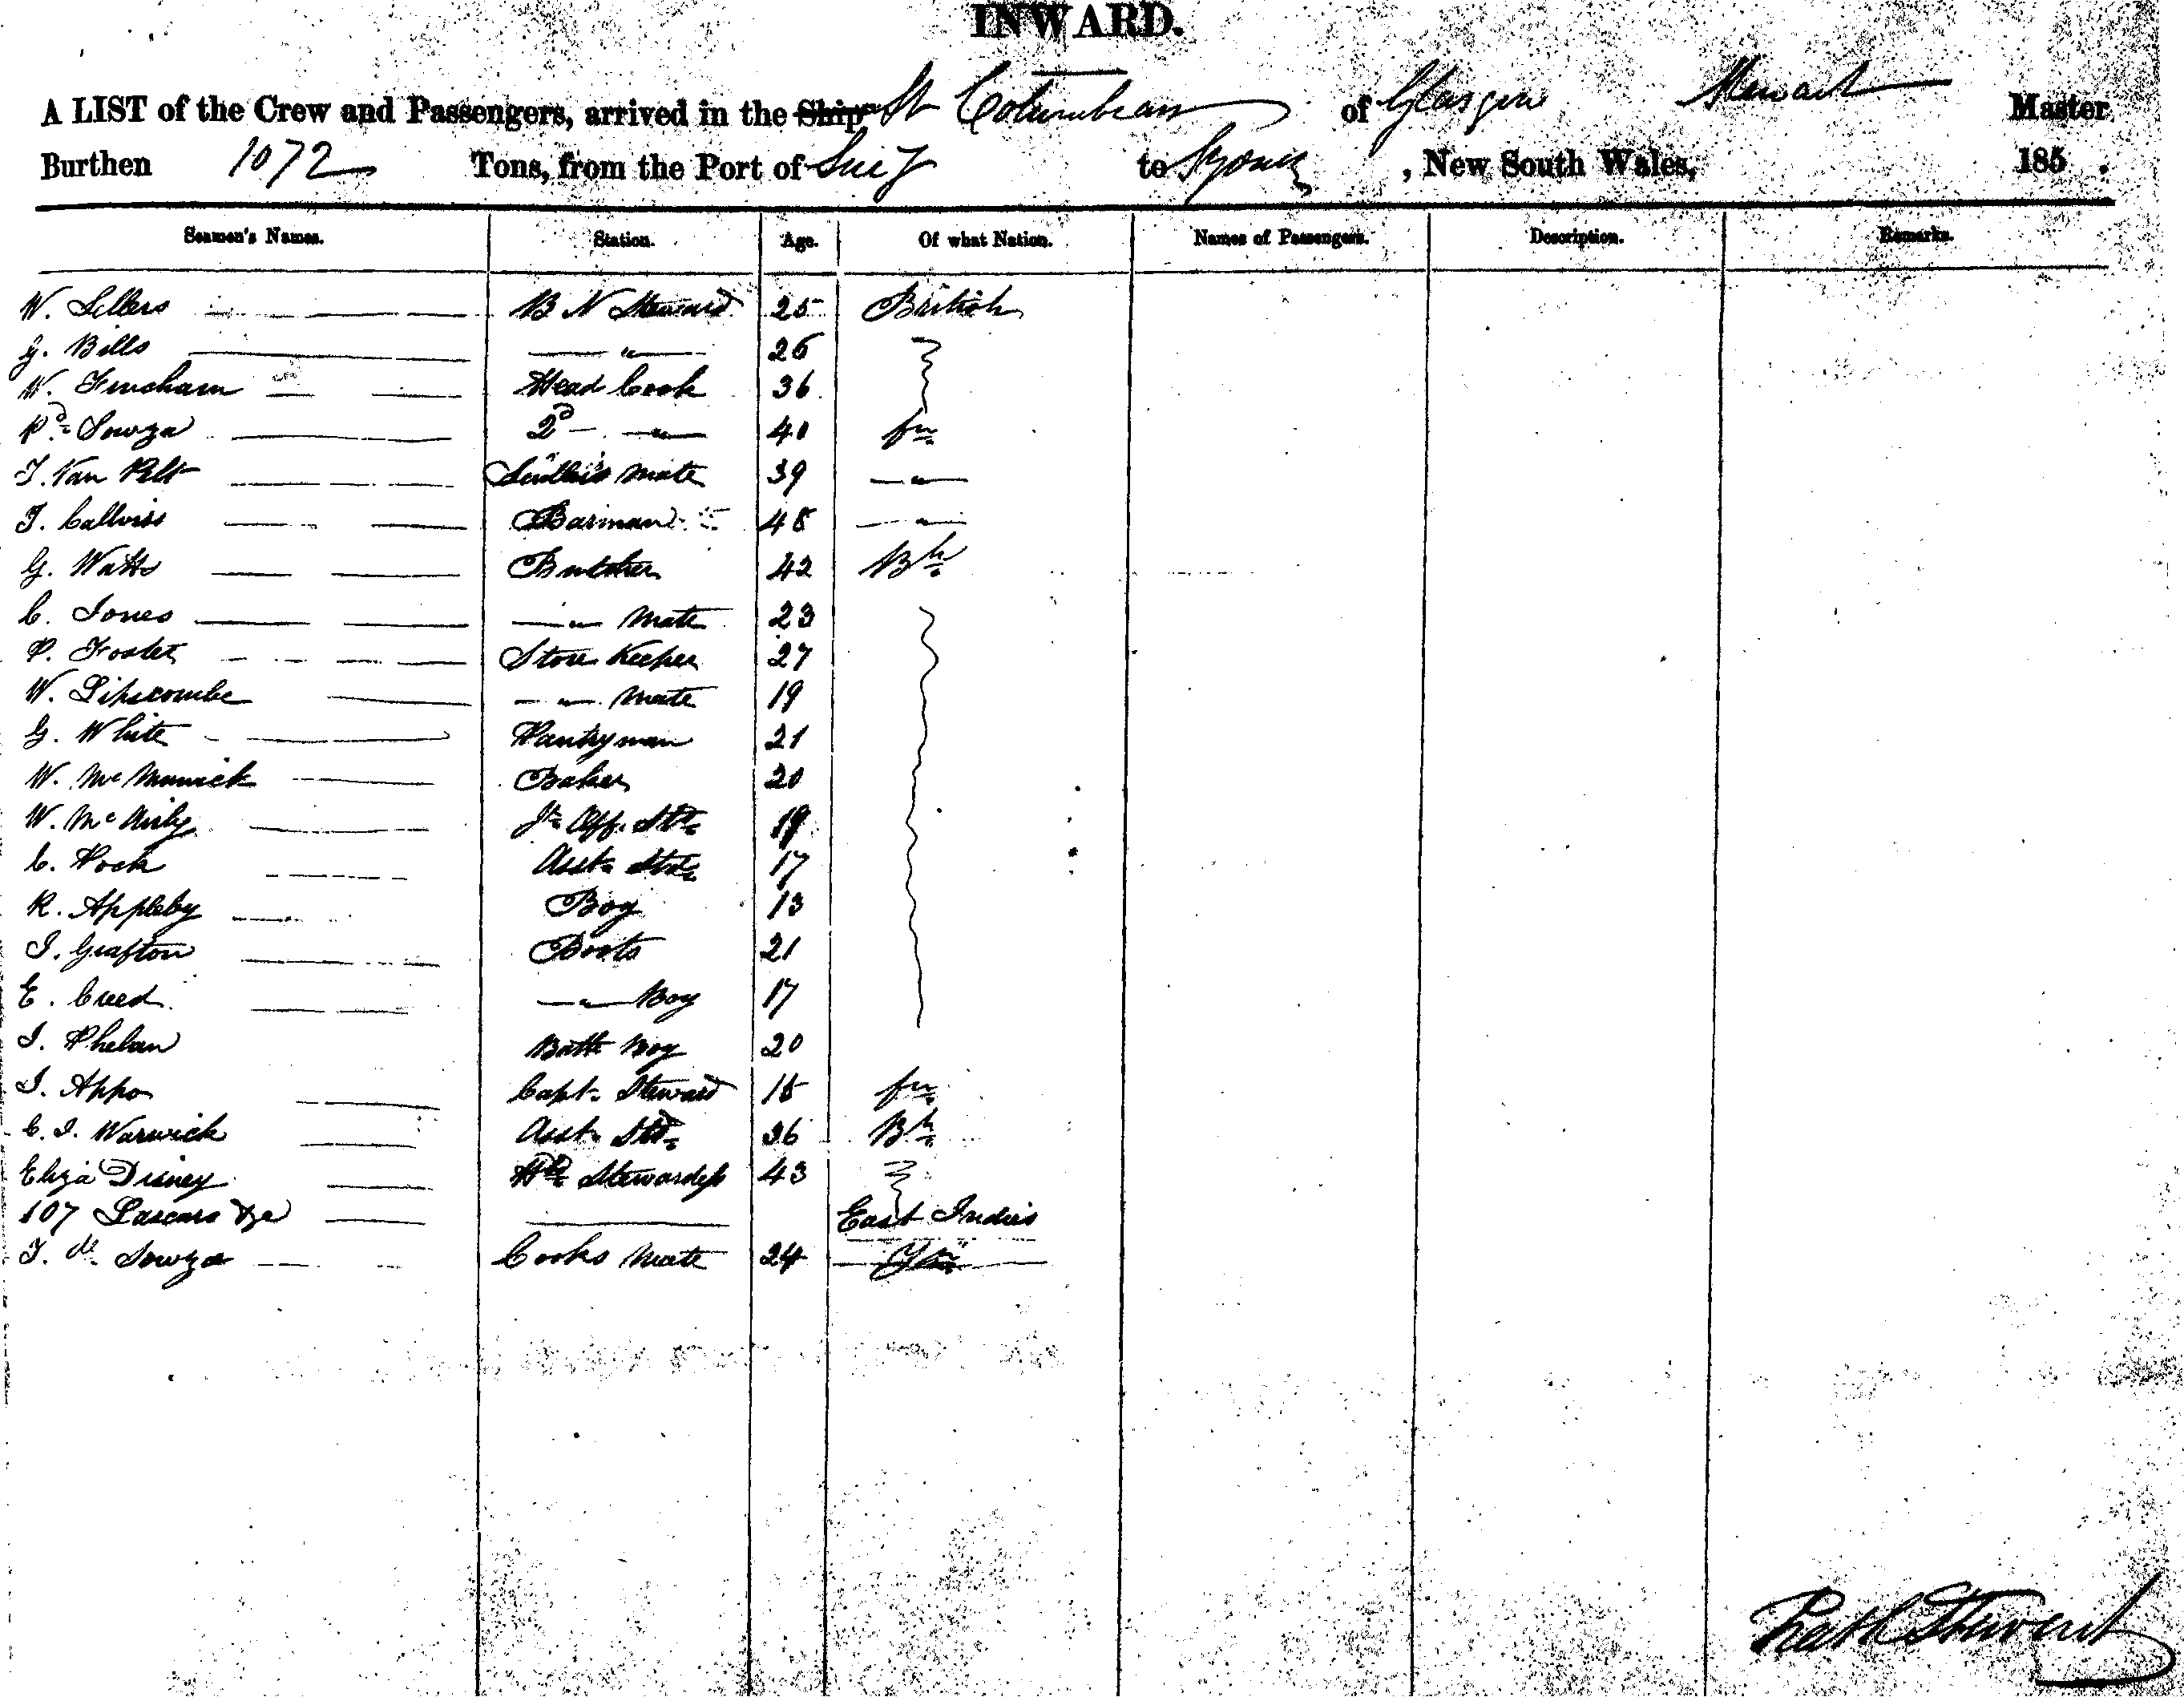 INWARD.
A LIST of the Crew and Passengers, arrived in the Ship St Columbian of Glasgow Stewart Master
Burthen 1072 Tons, from the Port of Suez to Sydney, New South Wales, 185 .
Seamen's Names. Station. Age. Of what Nation. Names of Passengers. Description. Remarks.
W. Sellers B N Steward 25 British
G. Bills " 26
W. Fincham Head Cook 36
Pd. Sowza 2d " 40 fn
J. Van Pelt mate 39 "
J. Barman 48 "
G. Watts Butcher 42 Bh
C. Jones " mate 23
P. Foster Store Keeper 27
W. Lipscombe " mate 19
G. White Pantryman 21
W. Baker 20
W. Off. Std 19
C. Pock Asst. Std 17
R. Appleby Boy 13
J. Grafton Boots 21
E. Creed " Boy 17
J. Phelan Bath Boy 20
J. Appo Capt. Steward 18 fn
C. J. Warwick Asst. Std 36 Bh
Eliza Disney Stewardess 43
107 Lascars &c East Indies
J. d. Sowza Cooks Mate 24
Stewart